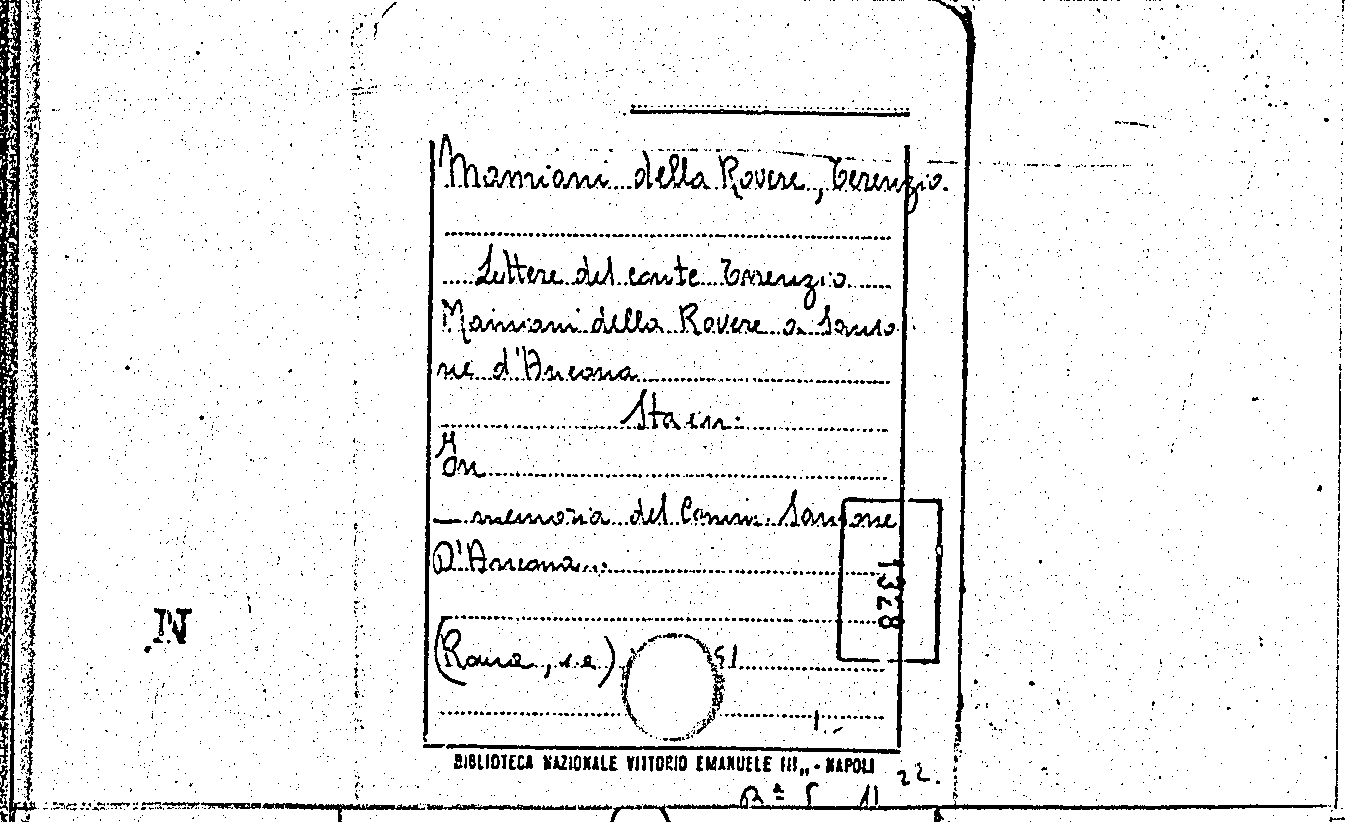 Mamiani della Rovere, Terenzio.
Lettere del conte Terenzio
Mamiani della Rovere a Sanso
ne d'Ancona
Sta in:
In
— memoria del Comm. Sansone
D'Ancona...
1328
N
(Roma, s.a)
BIBLIOTECA NAZIONALE VITTORIO EMANUELE III„ - NAPOLI
22.